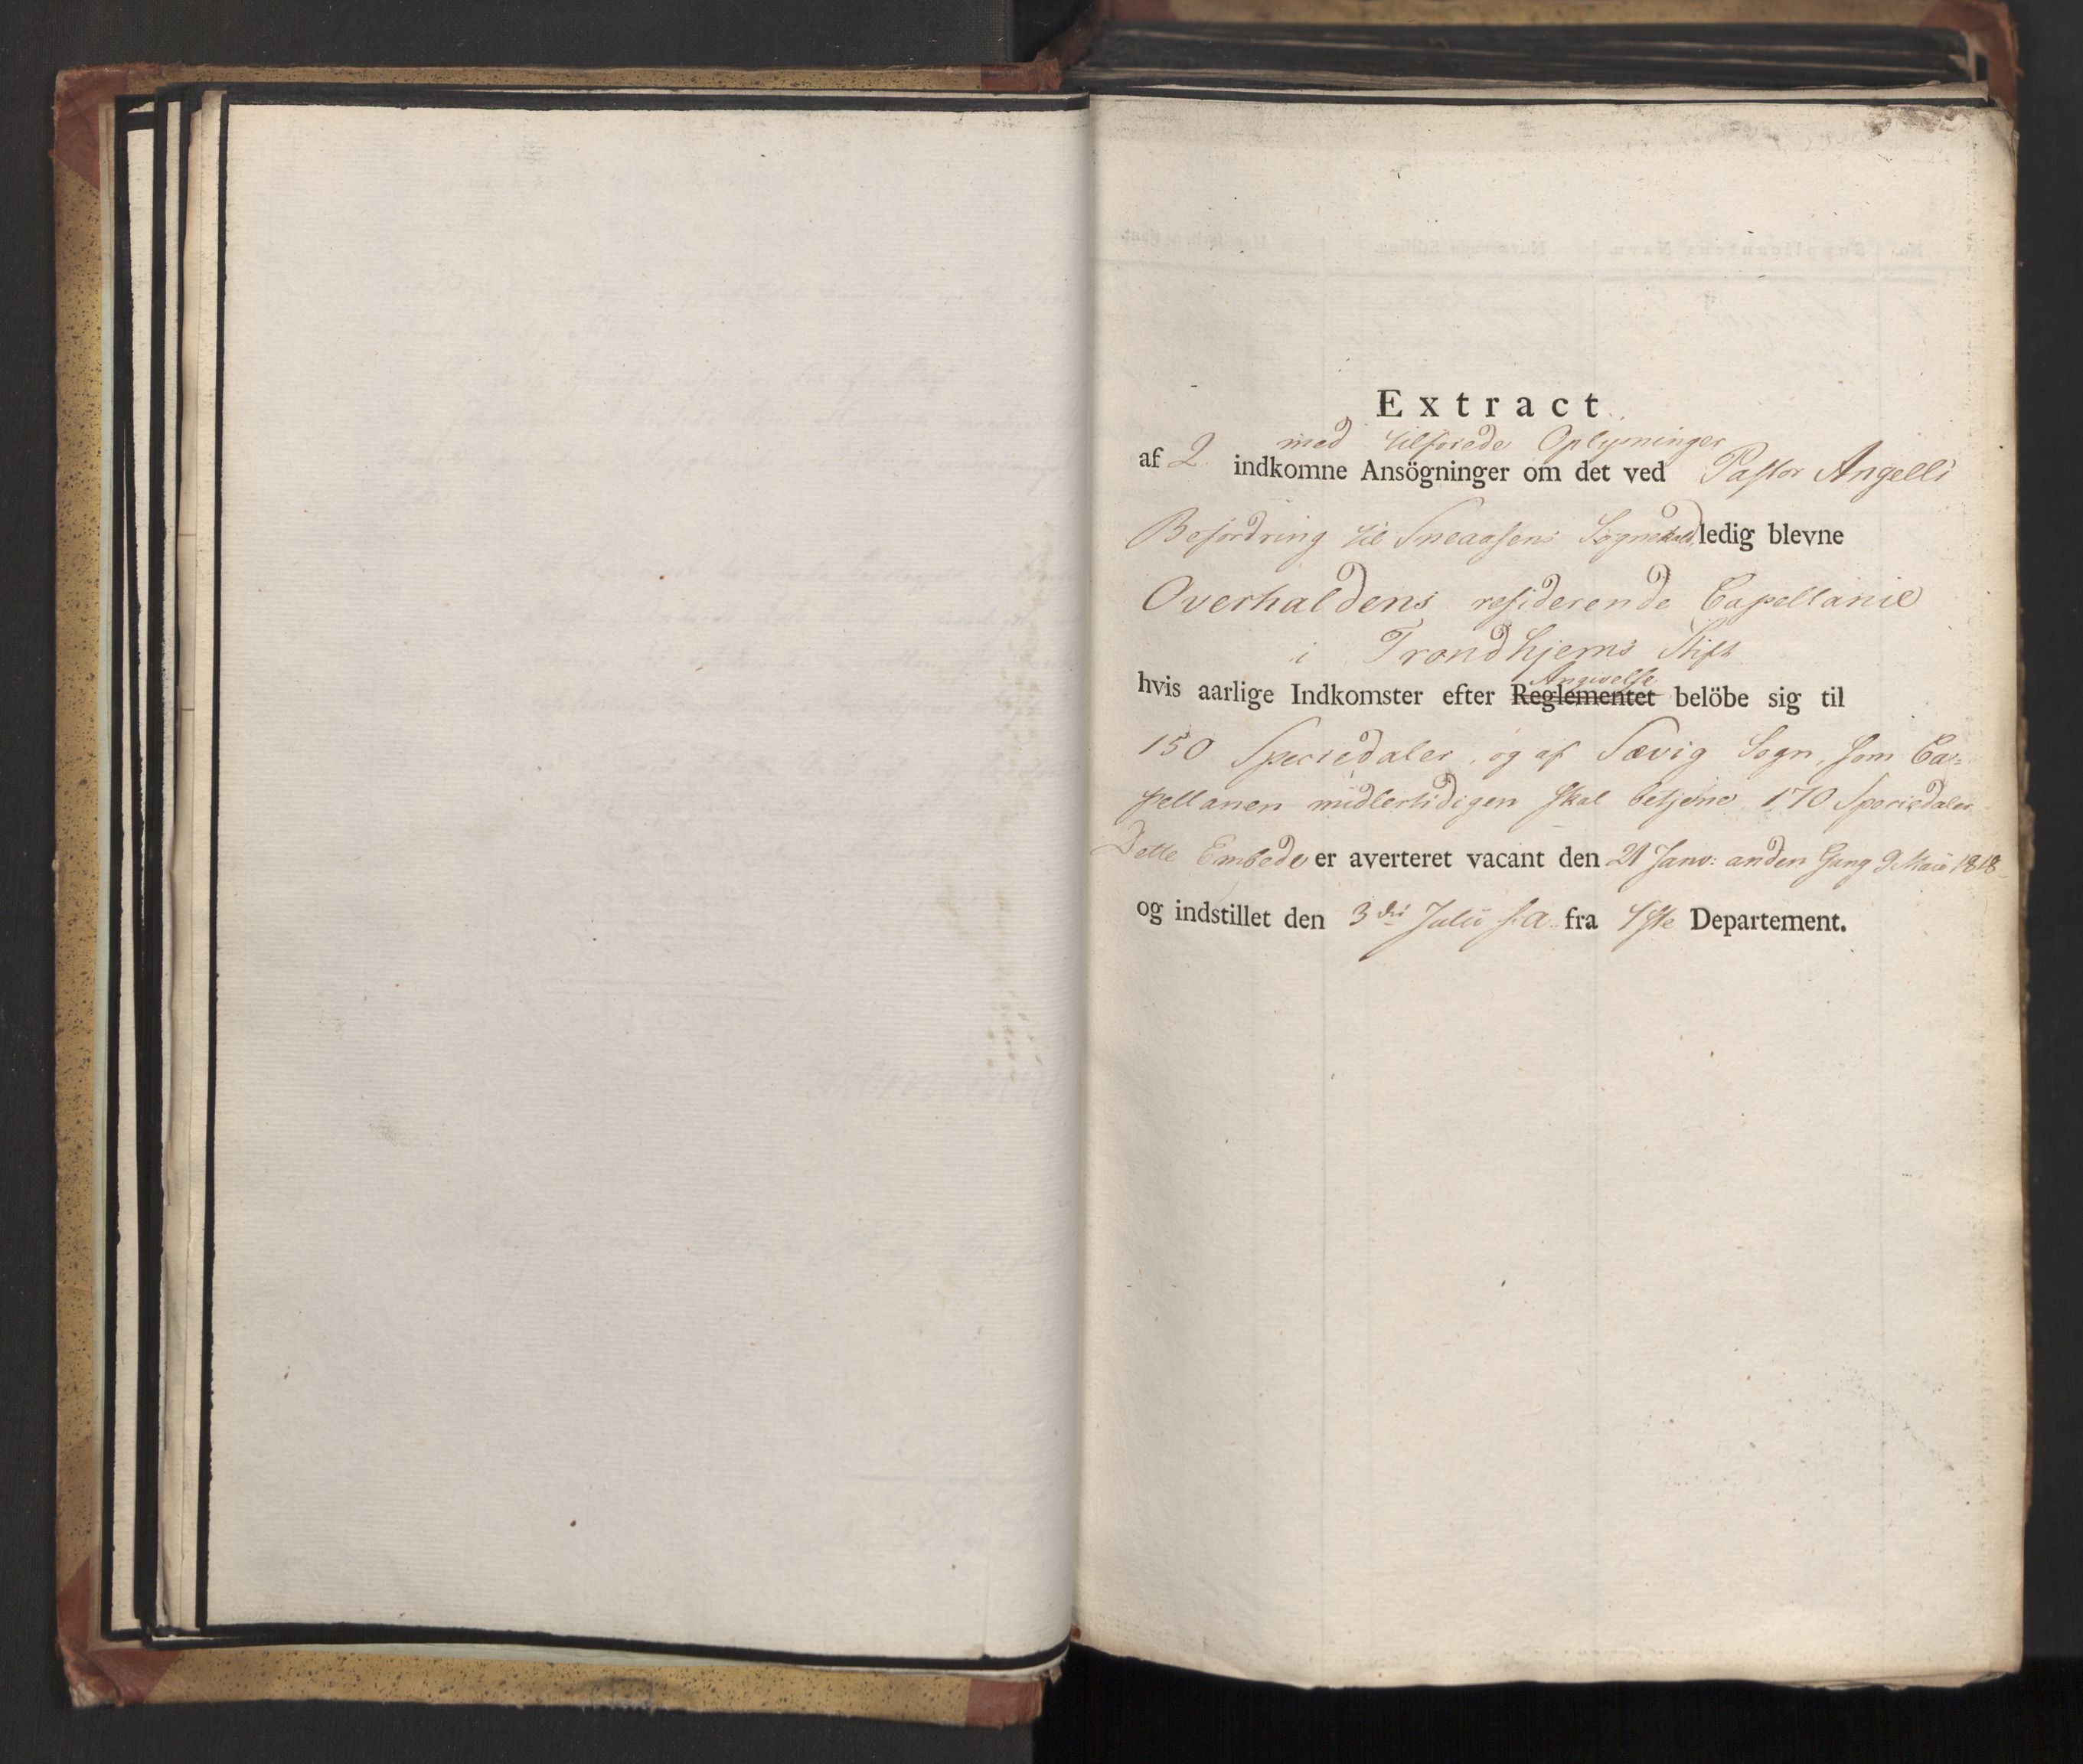 Extract
med tilförede Oplysninger
af 2 indkomne Ansögninger om det ved Pastor Angells
Befordring til Sneaasens Sognekald ledig blevne
Overhaldens residerende Capellanie
i Trondhjems Stift
Angivelse
hvis aarlige Indkomster efter Reglementet belöbe sig til
150 Speciedaler, og af Sævig Sogn, som Ca-
pellanen midlertidigen skal betjene 170 Speciedaler
Dette Embede er averteret vacant den 21 Janv: anden Gang 9 Maii 1818
og indstillet den 3die Julii s. a. fra 1ste Departement.